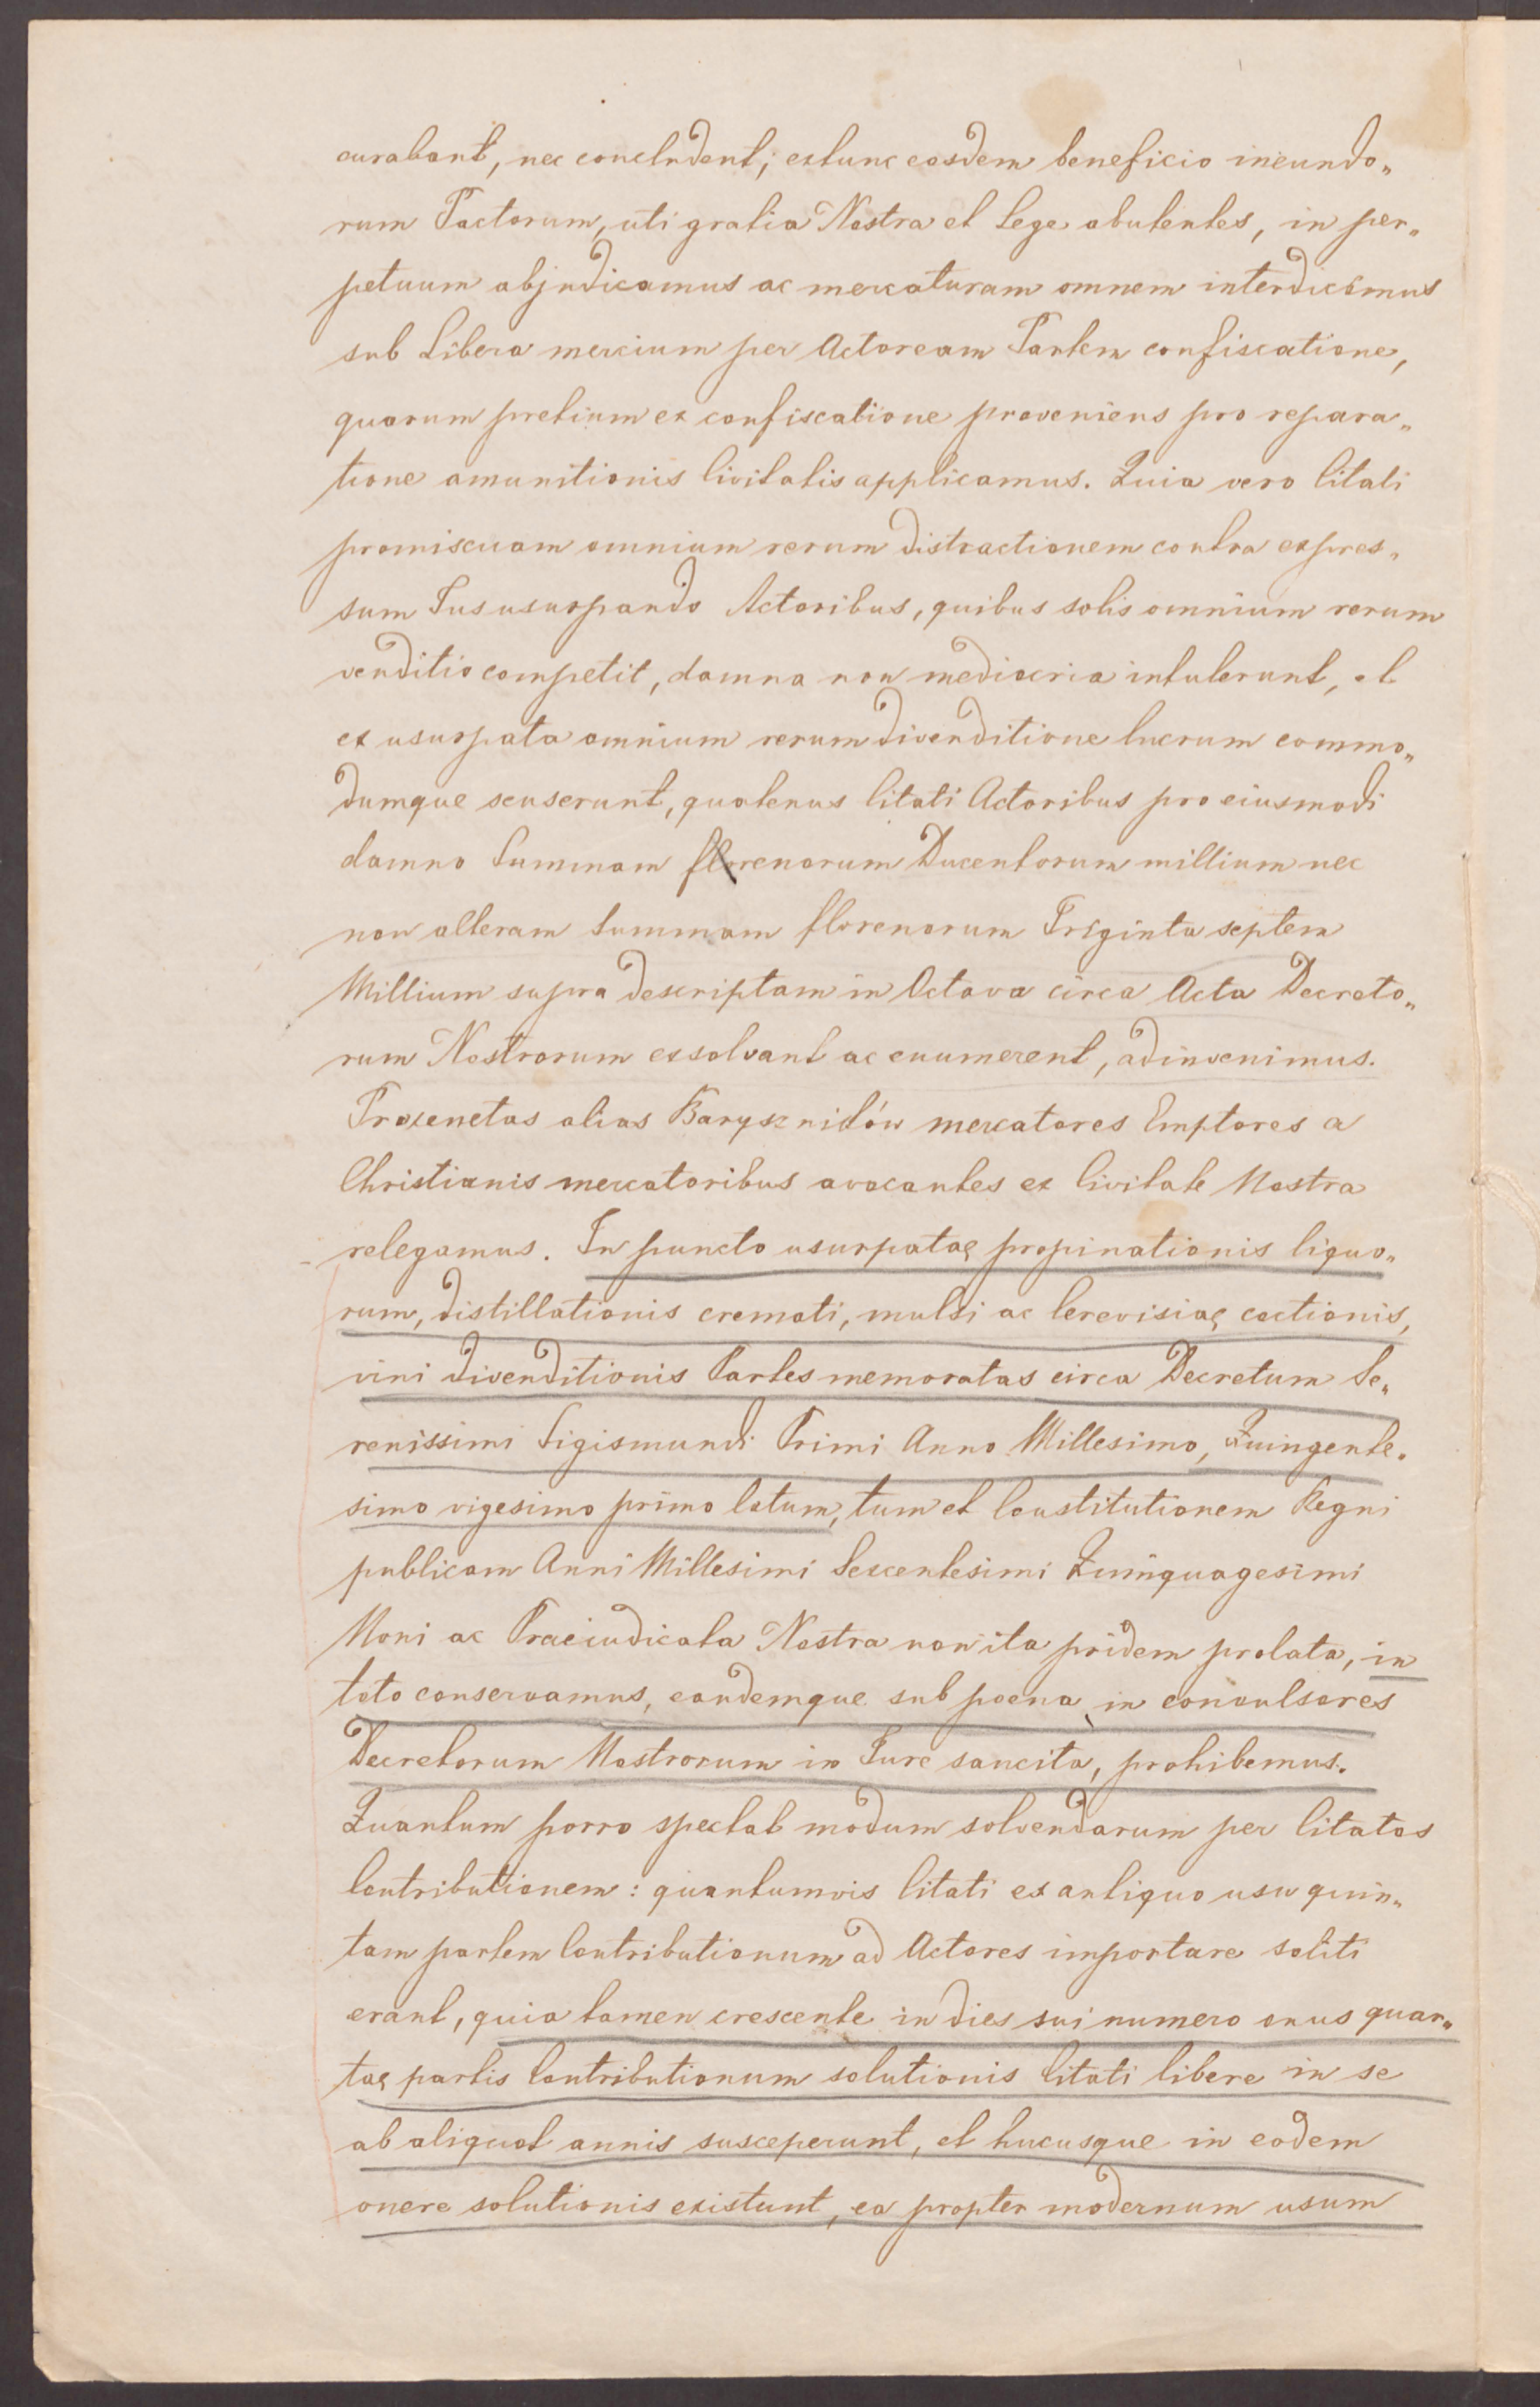 curabant, nec concludent; extunc eosdem beneficio ineundo„
rum Pactorum, uti gratia Nostra et Lege abutentes, in per„
petuum abjudicamus ac mercaturam omnem interdicimus
sub Libera mercium per Actoream Partem confiscatione,
quorum pretium ex confiscatione proveniens pro repara„
tione amunitionis Civitatis applicamus. Quia vero Citati
promiscuam omnium rerum distractionem contra expres„
sum Jus usurpando Actoribus, quibus solis omnium rerum
venditio competit, damna non mediocria intulerunt, et
ex usurpata omnium rerum divenditione lucrum commo„
dumque senserunt, quatenus Citati Actoribus pro eiusmodi
damno Summam florenorum Ducentorum millium nec
non alteram Summam florenorum Triginta septem
Millium supra descriptam in Octava circa Acta Decreto„
rum Nostrorum exsolvant ac enumerent, adinvenimus.
Proxenetas alias Baryszników mercatores Emptores a
Christianis mercatoribus avocantes ex Civitate Nostra
relegamus. In puncto usurpatae propinationis liquo„
rum, distillationis cremati, mulsi ac Cerevisiae coctionis,
vini divenditionis Partes memoratas circa Decretum Se„
renissimi Sigismundi Primi Anno Millesimo, Quingente„
simo vigesimo primo latum, tum et Constitutionem Regni
publicam Anni Millesimi Sexcentesimi Quinquagesimi
Noni ac Praeiudicata Nostra non ita pridem prolata, in
toto conservamus, eandemque sub poena, in convulsores
Decretorum Nostrorum in Jure sancita, prohibemus.
Quantum porro spectat modum solvendarum per Citatos
Contributionem: quantumvis Citati ex antiquo usu quin„
tam partem Contributionum ad Actores importare soliti
erant, quia tamen crescente in dies sui numero onus quar„
tae partis Contributionum solutionis Citati libere in se
ab aliquot annis susceperunt, et hucusque in eodem
onere solutionis existunt, ea propter modernum usum